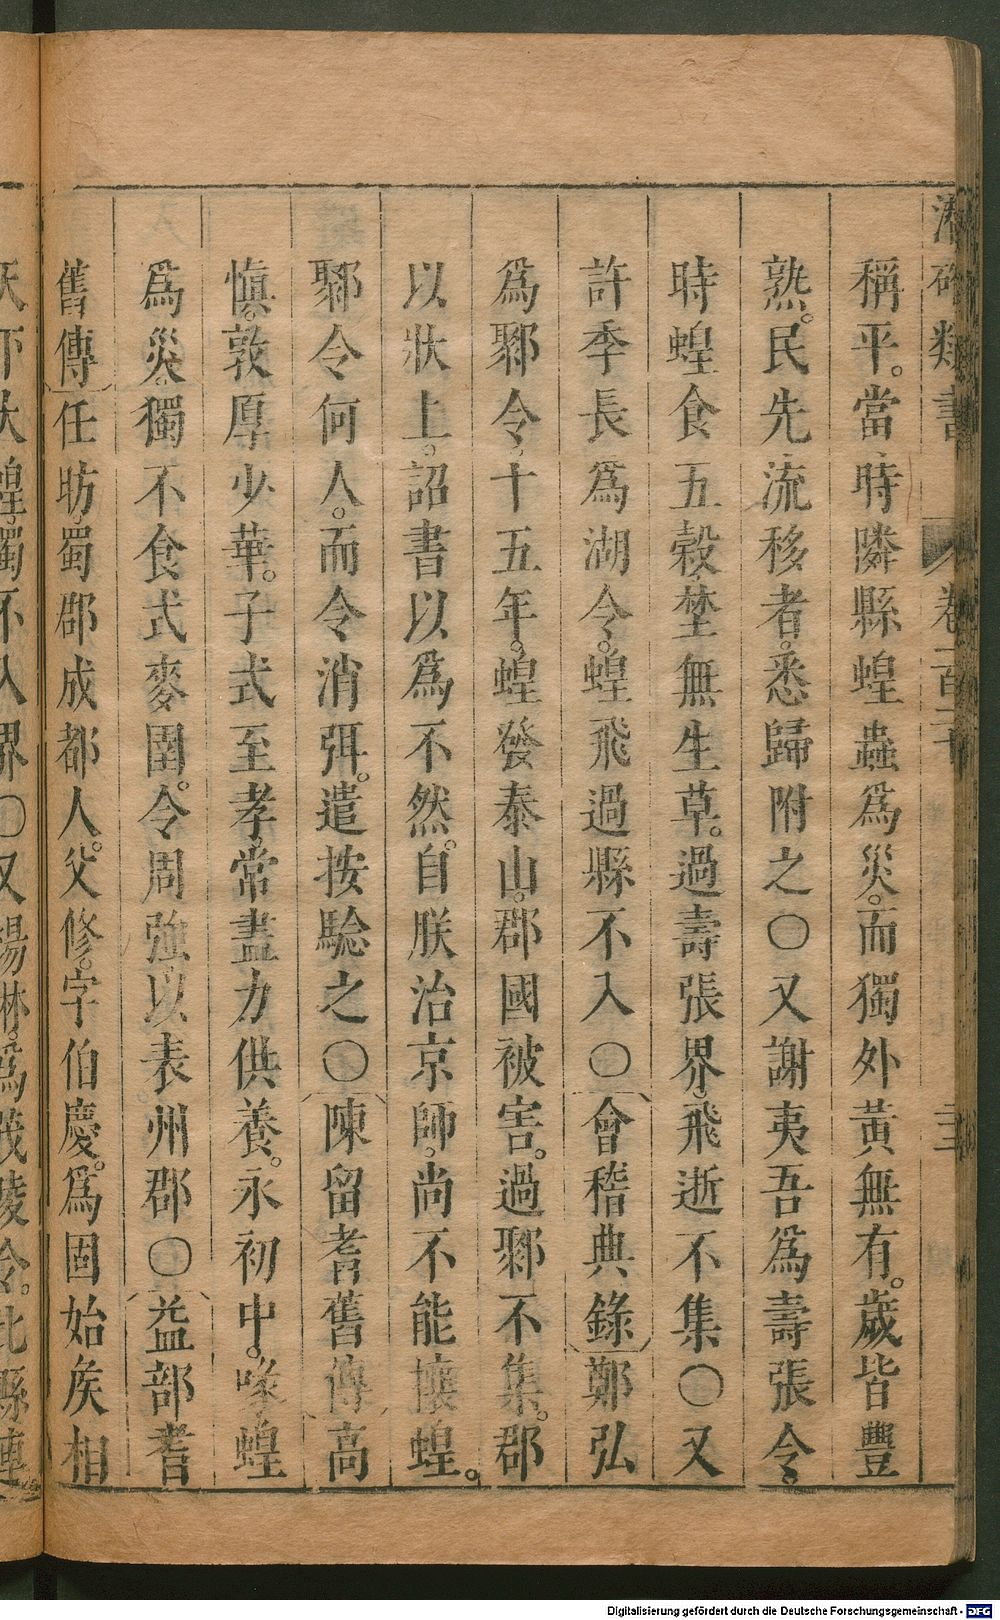 類書 卷一百二十
稱平。當時隣縣蝗蟲爲災。而獨外黃無有。歲皆豐
熟。民先流移者。悉歸附之〇又謝夷吾爲壽張令。
時蝗食五穀。埜無生草。過壽張界。飛逝不集〇又
許季長爲湖令。蝗飛過縣不入〇會稽典錄鄭弘
爲鄒令。十五年。蝗發泰山。郡國被害。過鄒不集。郡
以狀上。詔書以爲不然。自朕治京師。尚不能攘蝗。
鄒令何人。而令消弭。遣按驗之〇陳留耆舊傳高
愼。敦厚少華。子式至孝。常盡力供養。永初中。喙蝗
爲災。獨不食式麥圉。令周強以表州郡〇益部耆
舊傳任昉。蜀郡成都人。父修。字伯慶。爲固始矦相
天下大蝗。獨不入界〇又楊琳。爲茂陵令。比縣連
Digitalisierung gefördert durch die Deutsche Forschungsgemeinschaft - DFG